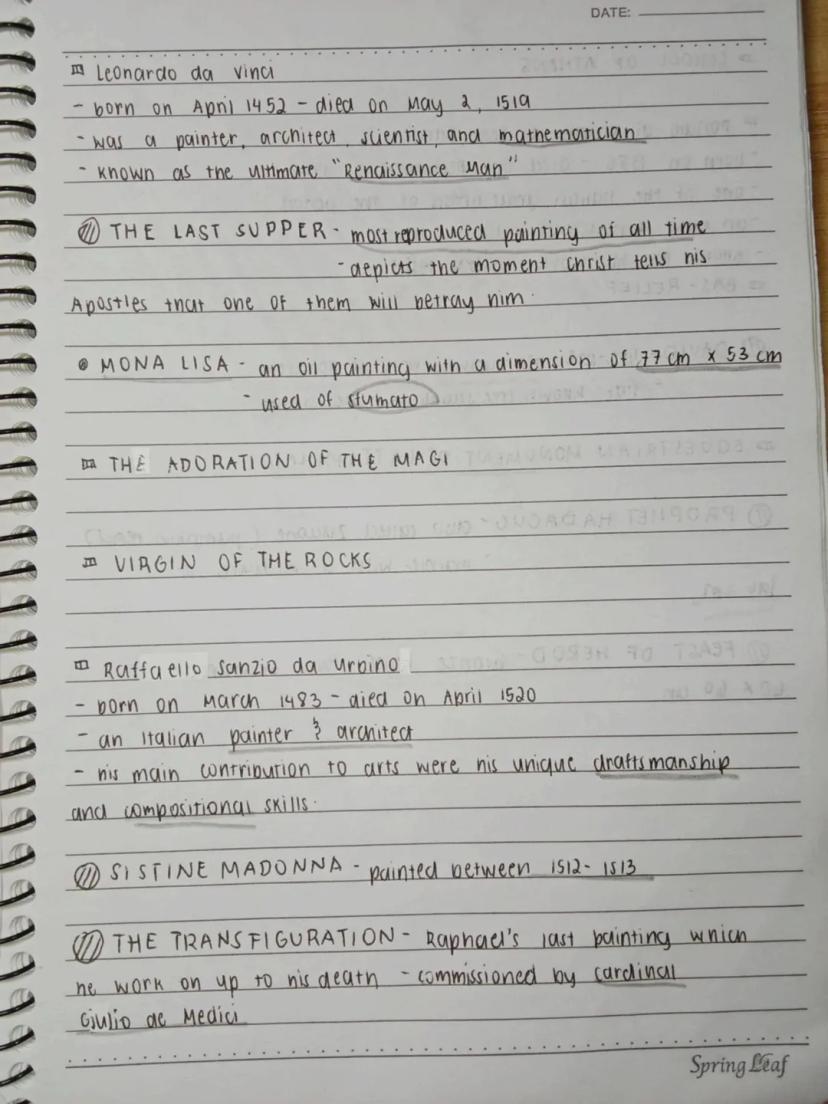 DATE:
Leonardo da Vinci
- born on April 1452 - died on May 2, 1519
- was a painter, architect, scientist, and mathematician
- known as the ultimate "Renaissance Man"
THE LAST SUPPER - most reproduced painting of all time
- depicts the moment christ tells his
Apostles that one of them will betray him.
MONA LISA - an oil painting with a dimension of 77 cm x 53 cm
- used of sfumato
THE ADORATION OF THE MAGI
VIRGIN OF THE ROCKS
Raffaello Sanzio da Urbino
- born on March 1483 - died on April 1520
- an Italian painter & architect
- his main contribution to arts were his unique draftsmanship
and compositional skills.
SISTINE MADONNA - painted between 1512 - 1513
THE TRANSFIGURATION - Raphael's last painting which
he work on up to his death - commissioned by cardinal
Giulio de Medici
Spring Leaf